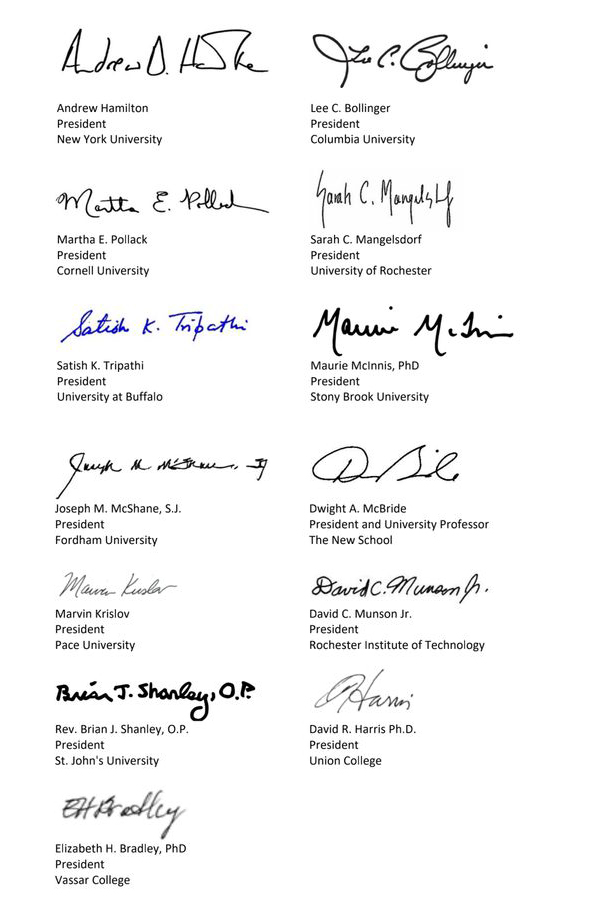 Andrew D. Ham
Lee C. Bollinger
Andrew Hamilton
President
New York University
Lee C. Bollinger
President
Columbia University
Martha E. Pollack
Sarah C. Mangelsdorf
Martha E. Pollack
President
Cornell University
Sarah C. Mangelsdorf
President
University of Rochester
Satish K. Tripathi
Maurie McInnis
Satish K. Tripathi
President
University at Buffalo
Maurie McInnis, PhD
President
Stony Brook University
Joseph M. McShane, SJ
Joseph M. McShane, S.J.
President
Fordham University
Dwight A. McBride
President and University Professor
The New School
Marvin Krislov
David C. Munson Jr.
Marvin Krislov
President
Pace University
David C. Munson Jr.
President
Rochester Institute of Technology
Brian J. Shanley, O.P.
D Harris
Rev. Brian J. Shanley, O.P.
President
St. John's University
David R. Harris Ph.D.
President
Union College
EHBradley
Elizabeth H. Bradley, PhD
President
Vassar College